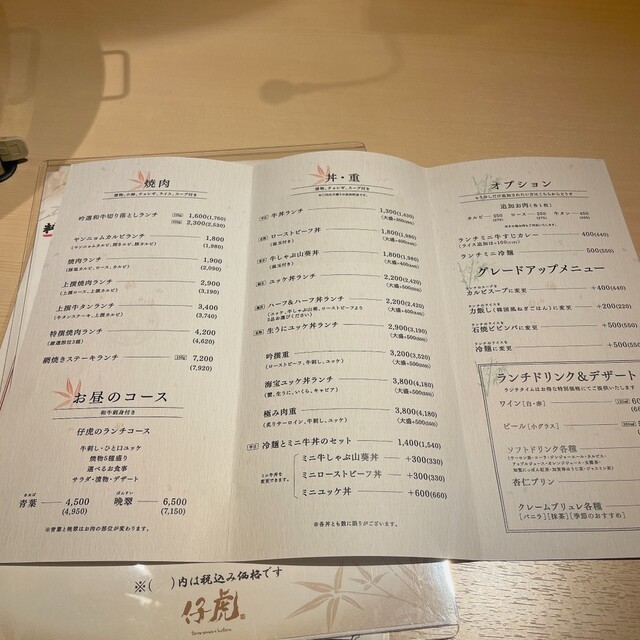 焼肉
漬物、小鉢、チョレギ、ライス、スープ付き
吟選和牛切り落としランチ 1,600(1,760)
2,300(2,530)
ヤンニョムカルビランチ 1,800
(1,980)
焼肉ランチ 1,900
(2,090)
上撰焼肉ランチ 2,900
(上撰ロース、上撰カルビ) (3,190)
上撰牛タンランチ 3,400
(牛タンステーキ、上撰カルビ) (3,740)
特撰焼肉ランチ 4,200
(厳選部位3種) (4,620)
網焼きステーキランチ 7,200
(7,920)
お昼のコース
和牛刺身付き
仔虎のランチコース
牛刺し・ひと口ユッケ
焼物5種盛り
選べるお食事
サラダ・漬物・デザート
青葉 4,500 晩翠 6,500
(4,950) (7,150)
※青葉と晩翠はお肉の部位が変わります。
丼・重
漬物、小鉢、チョレギ、スープ付き
牛丼ランチ 1,300(1,430)
ローストビーフ丼 1,800
牛しゃぶ山葵丼 1,800
ユッケ丼ランチ 2,200(2,420)
ハーフ&ハーフ丼ランチ 2,200(2,420)
(ユッケ、牛しゃぶ山葵、ローストビーフより
2品お選びください)
生うにユッケ丼ランチ 2,900(3,190)
(大盛+500)
吟撰重 3,200(3,520)
(ローストビーフ、牛刺し、ユッケ)
海宝ユッケ丼ランチ 3,800(4,180)
(蟹、生うに、いくら、キャビア)
極み肉重 3,800(4,180)
(炙りサーロイン、牛刺し、ユッケ)
冷麺とミニ牛丼のセット 1,400(1,540)
ミニ丼を
変更できます。
ミニ牛しゃぶ山葵丼 +300(330)
ミニローストビーフ丼 +300(330)
ミニユッケ丼 +600(660)
※各丼とも数に限りがございます。
オプション
追加お肉(各1枚)
カルビ 250 ロース 250 牛タン 450
ランチミニ牛すじカレー 400(440)
(ライス追加は+100)
ランチミニ冷麺 500(550)
グレードアップメニュー
カルビスープに変更 +400(440)
力飯し(韓国風ねぎごはん)に変更 +200(220)
石焼ビビンバに変更 +500(550)
冷麺に変更 +500(55
ランチドリンク&デザート
ランチタイムはお得な特別価格にてご提供いたします
ワイン[白・赤]
ビール[小グラス]
ソフトドリンク各種
杏仁プリン
クレームブリュレ各種
[バニラ][抹茶][季節のおすすめ]
※( )内は税込み価格です
仔虎